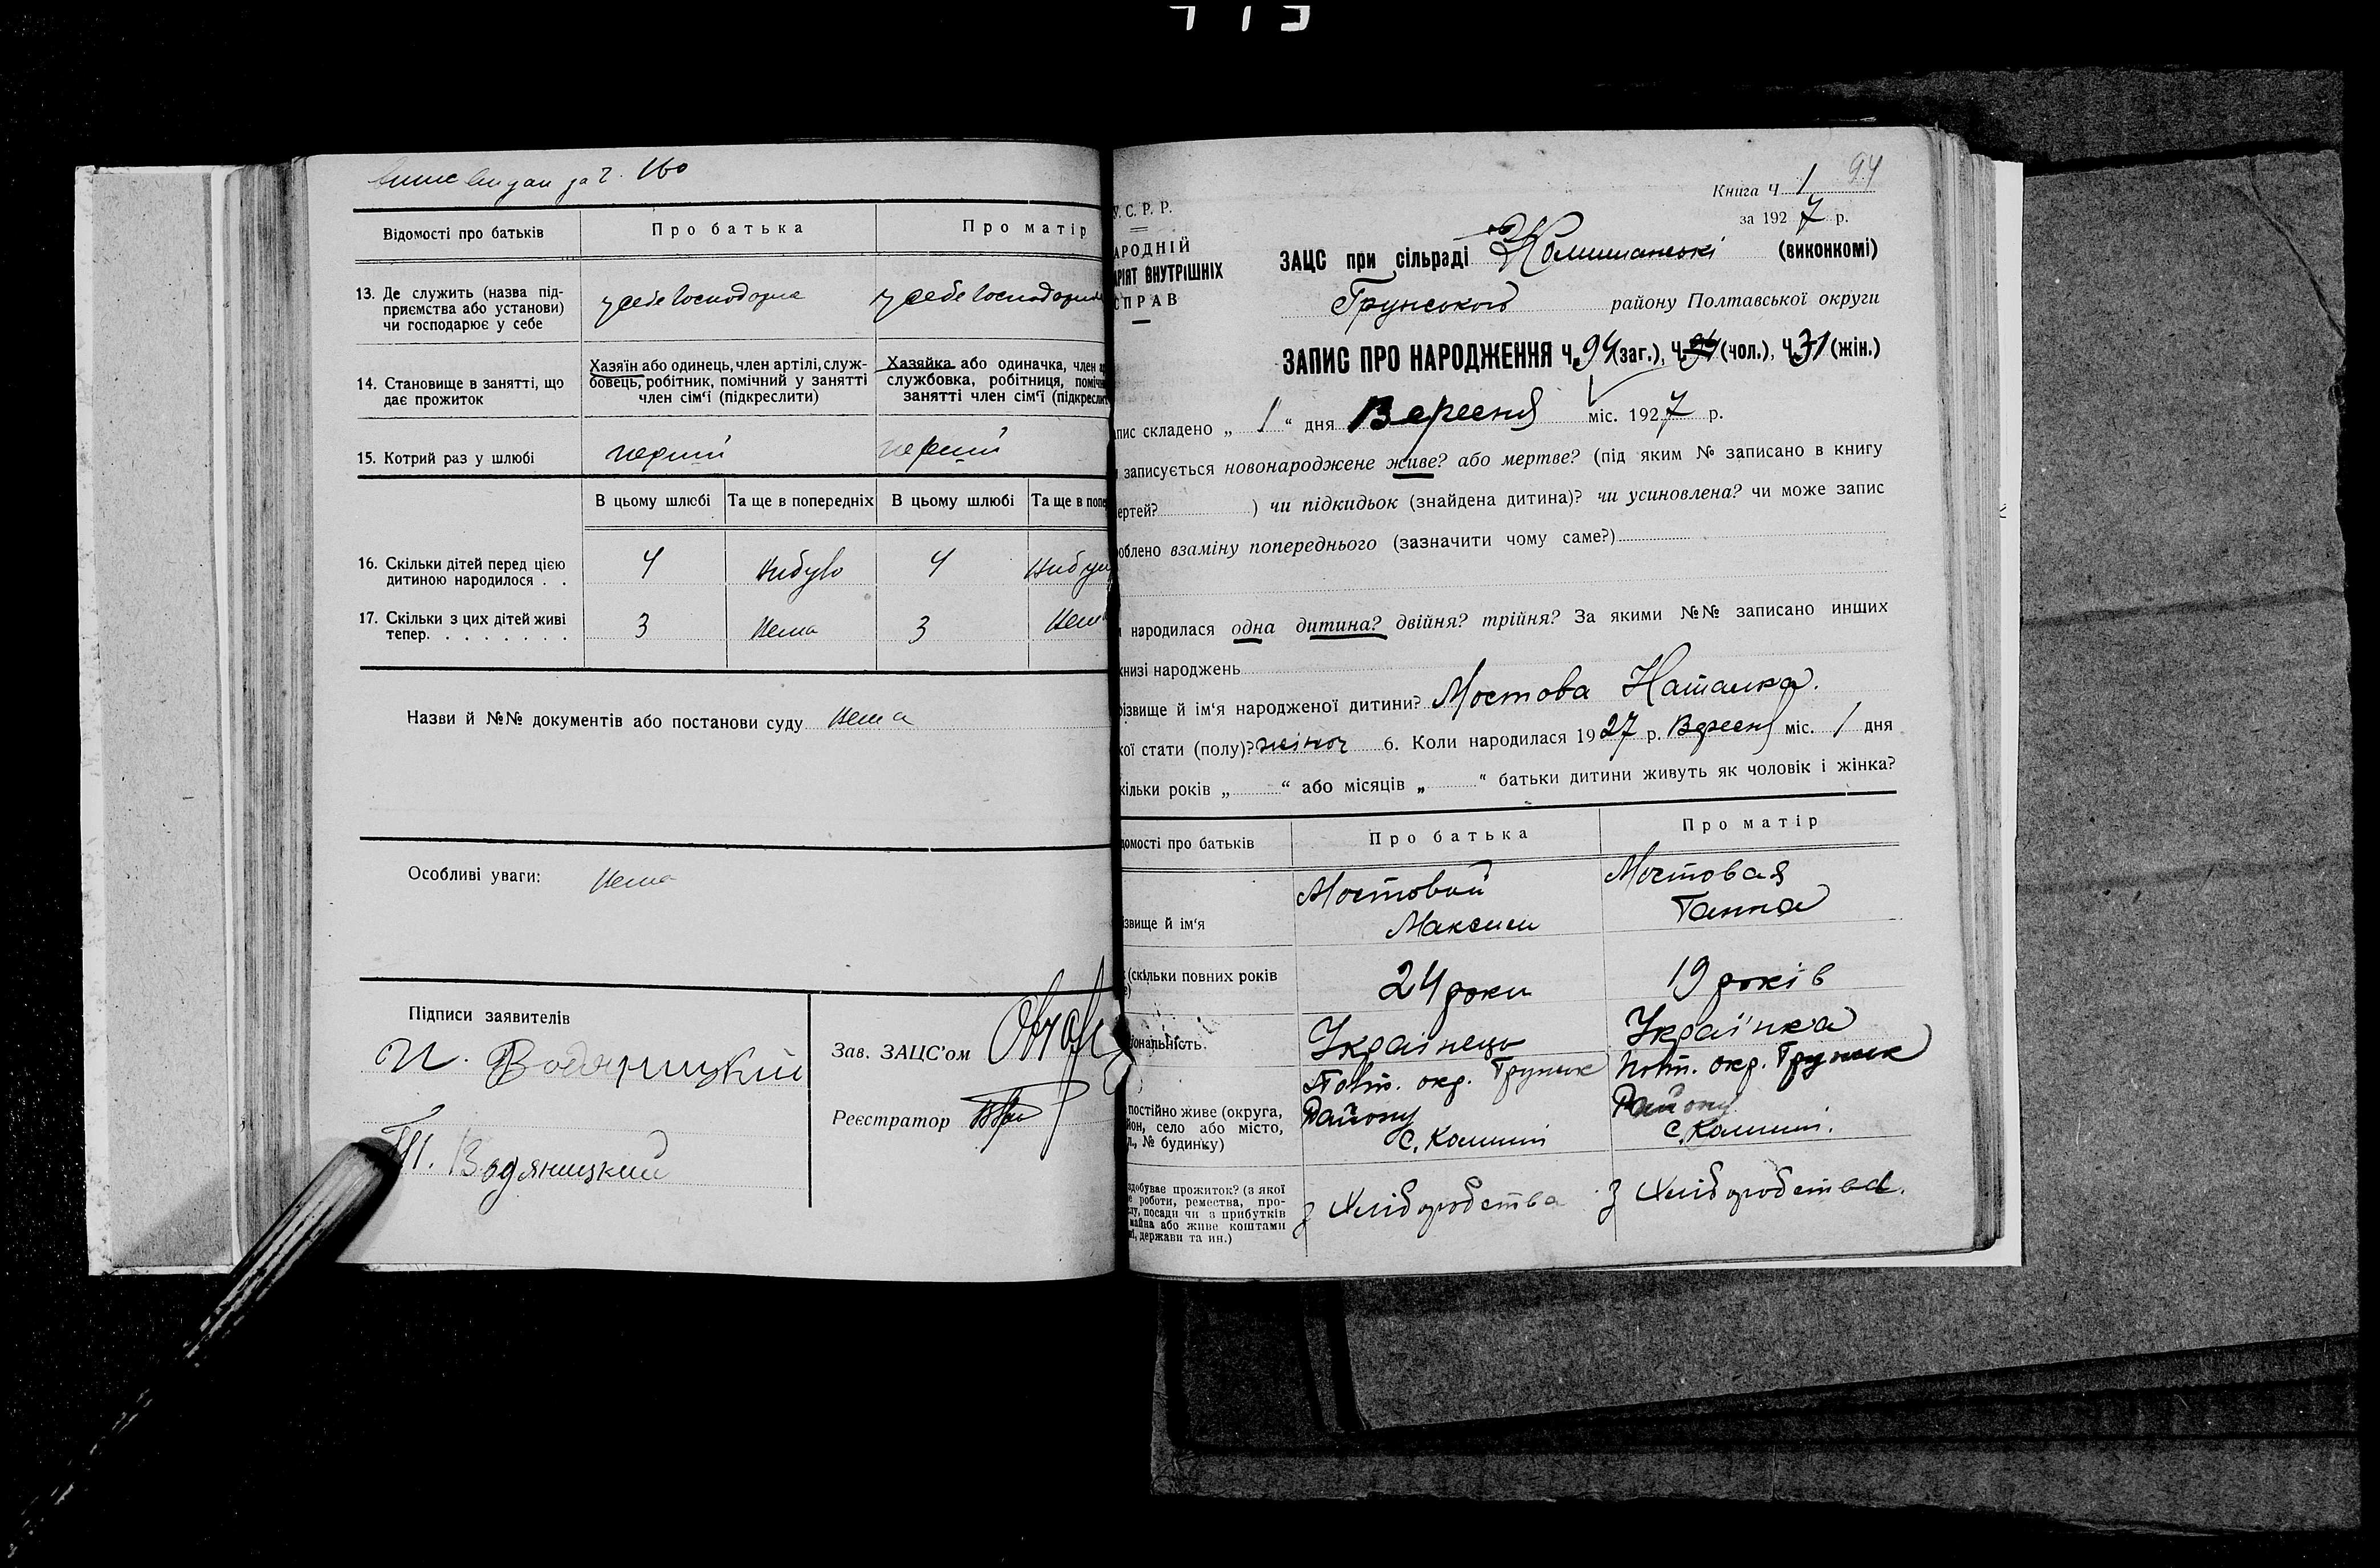 Випис видан за ч. 160
Відомості про батьків
Про батька
Про матір
13. Де служить (назва під-
приємства або установи)
чи господарює у себе
у себе Господорка
у себе Господорка
14. Становище в занятті, що
дає прожиток
Хазяїн або одинець, член артілі, служ-
бовець, робітник, помічний у занятті
член сім'ї (підкреслити)
Хазяйка або одиначка, член
службовка, робітниця, поміч
занятті член сім'ї (підкреслит
15. Котрий раз у шлюбі
перший
перший
В цьому шлюбі
Та ще в попередніх
В цьому шлюбі
Та ще в попе
16. Скільки дітей перед цією
дитиною народилося . .
4
Нибуло
4
17. Скільки з цих дітей живі
тепер. . . . . . . .
3
Нема
3
Нема
Назви й №№ документів або постанови суду Нема
Особливі уваги: Нема
Підписи заявителів
И. Водяницкий
П. Водяницкий
Зав. ЗАЦС'ом
Реєстратор
94
Книга Ч 1
за 1927 р.
У. С. Р. Р.
АРОДНІЙ
АРІЯТ ВНУТРІШНІХ
СПРАВ
ЗАЦС при сільраді (виконкомі)
Грунського району Полтавської округи
ЗАПИС ПРО НАРОДЖЕННЯ Ч. 94 (заг.), Ч. 94 (чол.), Ч. 31 (жін.)
пис складено „ 1 “ дня Вересня міс. 1927 р.
записується новонароджене живе? або мертве? (під яким № записано в книгу
ертей? ) чи підкидьок (знайдена дитина)? чи усиновлена? чи може запис
облено взаміну попереднього (зазначити чому саме?)
народилася одна дитина? двійня? трійня? За якими №№ записано инших
книзі народжень
різвище й ім'я народженої дитини? Мостова Наталка.
кої стати (полу)? жіноч 6. Коли народилася 1927 р. Вересня міс. 1 дня
кільки років „ “ або місяців „ “ батьки дитини живуть як чоловік і жінка?
домості про батьків
Про батька
Про матір
ізвище й ім'я
Мостовий
Максим
Мостовая
Ганна
(скільки повних років
24 роки
19 років
іональність.
Українець
Українка
постійно живе (округа,
йон, село або місто,
л., № будинку)
Полт. окр. Грунськ
Району
с. Комиші
Полт. окр. Грунськ
Району
с. Комиші.
здобуває прожиток? (з якої
е роботи, ремества, про-
слу, посади чи з прибутків
майна або живе коштами
ні, держави та ин.)
з Хліборобства
з Хліборобства.